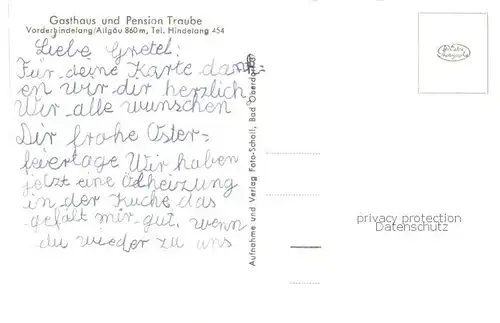 Gasthaus und Pension Traube
Vorderhindelang/Allgäu 860 m, Tel. Hindelang 454
Liebe Gretel:
Für deine Karte dan
en wir dir herzlich
Wir alle wünschen
Dir frohe Oster=
feiertage Wir haben
jetzt eine Ölheizung
in der Küche das
gefält mir gut, wenn
du wieder zu uns
Aufnahme und Verlag Foto-Scholl, Bad Oberdorf
privacy protection
Datenschutz